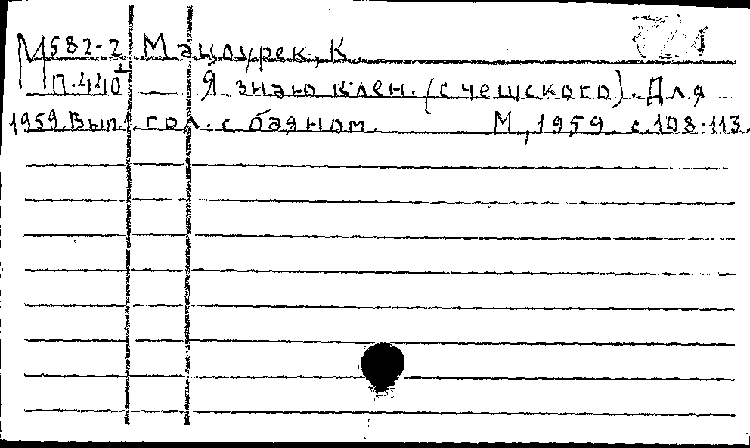 М582-2 Мацоурек, К.
П.440 Я знаю клен. (с чешского). Для
1959.Вып.1 гол. с баяном. М, 1959 с.108-113.